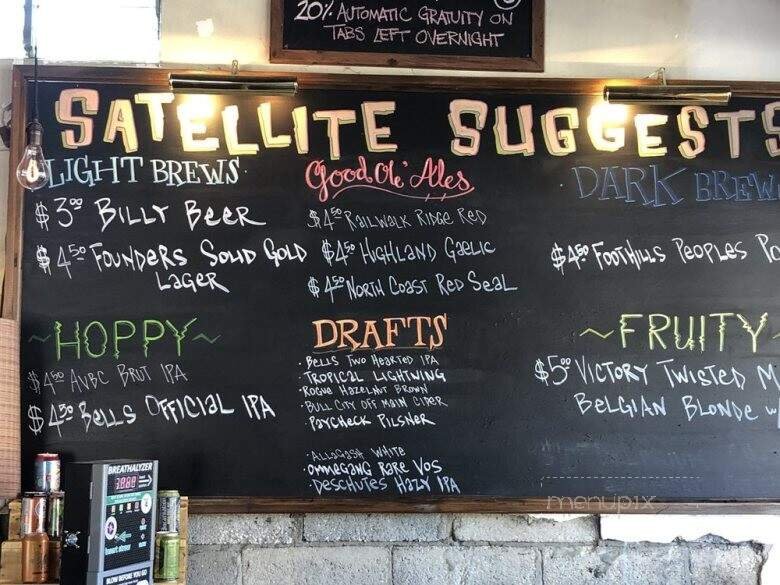 20% AUTOMATIC GRATUITY ON
TABS LEFT OVERNIGHT
SATELLITE SUGGESTS
LIGHT BREWS
$3.00 BILLY BEER
$4.50 FOUNDERS SOLID GOLD
LAGER
Good Ole' Ales
$4.50 RAILWALK RIDGE RED
$4.50 HIGHLAND GAELIC
$4.50 NORTH COAST RED SEAL
DARK BREW
$4.50 FOOTHILLS PEOPLES
~HOPPY~
$4.50 AVBC BRUT IPA
$4.50 BELLS OFFICIAL IPA
DRAFTS
· BELLS TWO HEARTED IPA
· TROPICAL LIGHTNING
· ROGUE HAZELNUT BROWN
· BULL CITY OFF MAIN CIDER
· PAYCHECK PILSNER
· ALLAGASH WHITE
· OMMEGANG RARE VOS
· DESCHUTES HAZY IPA
~FRUITY~
$5.00 VICTORY TWISTED M
BELGIAN BLONDE
BREATHALYZER
INSERT STRAW
BLOW BEFORE YOU GO
menupix